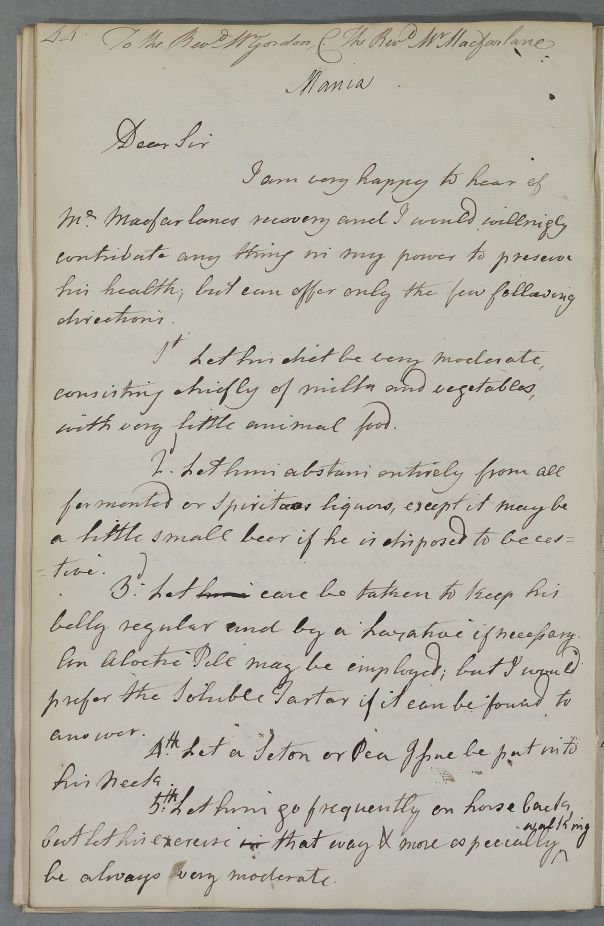 44. To the Revd. Mr Gordon, C. The Revd Mr Macfarlane
Mania
Dear Sir
I am very happy to hear of
Mr. Macfarlanes recovery and I would willingly
contribute any thing in my power to preserve
his health, but can offer only the few following
directions.
1st Let his diet be very moderate,
consisting chiefly of milk and vegetables,
with very little animal food.
2d. Let him abstain entirely from all
fermented or Spiritous liquors, except it may be
a little small beer if he is disposed to be cos=
=tive.
3d. Let him care be taken to keep his
belly regular and by a laxative if necessary.
An Aloetic Pill may be employed; but I would
prefer the Soluble Tartar if it can be found to
answer.
4th Let a Seton or Pea Issue be put into
his neck.
5th. Let him go frequently on horse back,
but let his exercise in that way & more especially walking
be always very moderate.